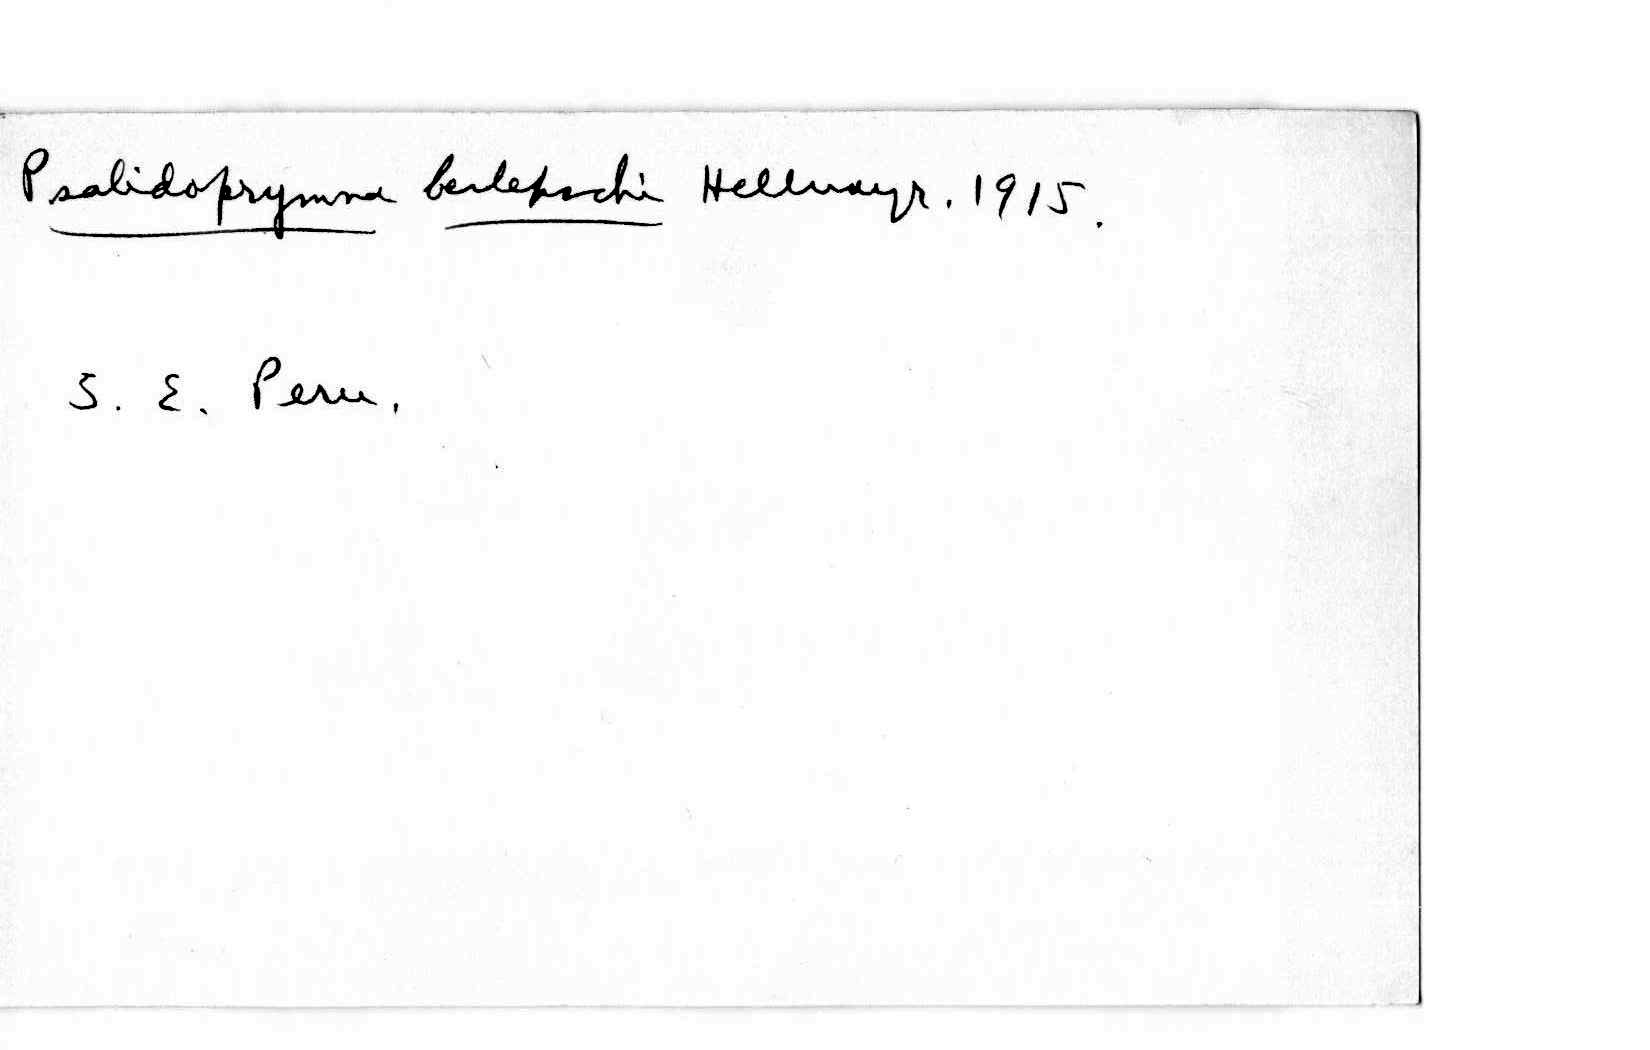 Psalidoprymna berlepschi Hellmayr. 1915.
S. E. Peru.